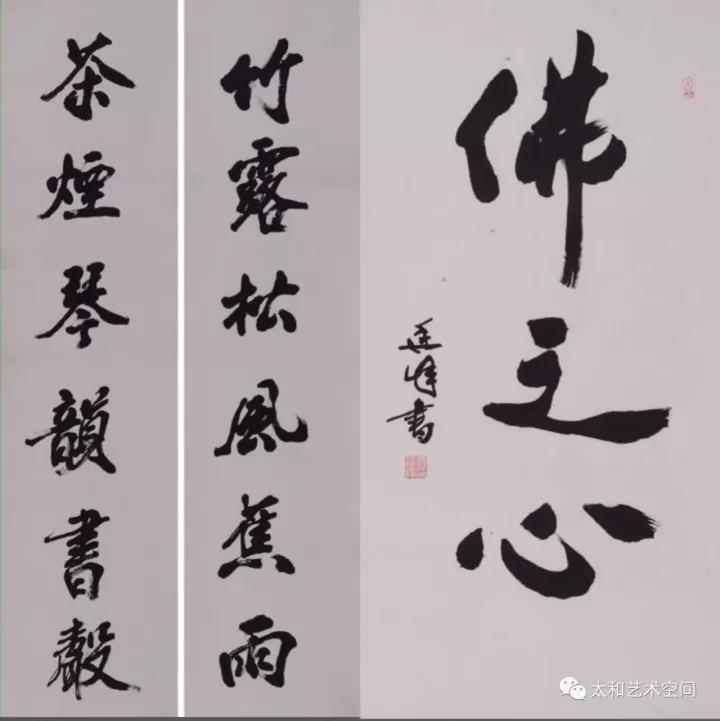 佛之心
延峰書
竹露松風蕉雨
茶煙琴韻書聲
太和艺术空间